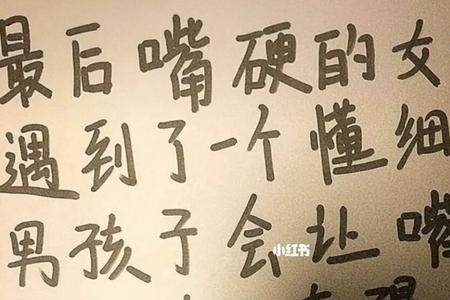 最后嘴硬的女
遇到了一个懂细
男孩子会让嘴
小红书